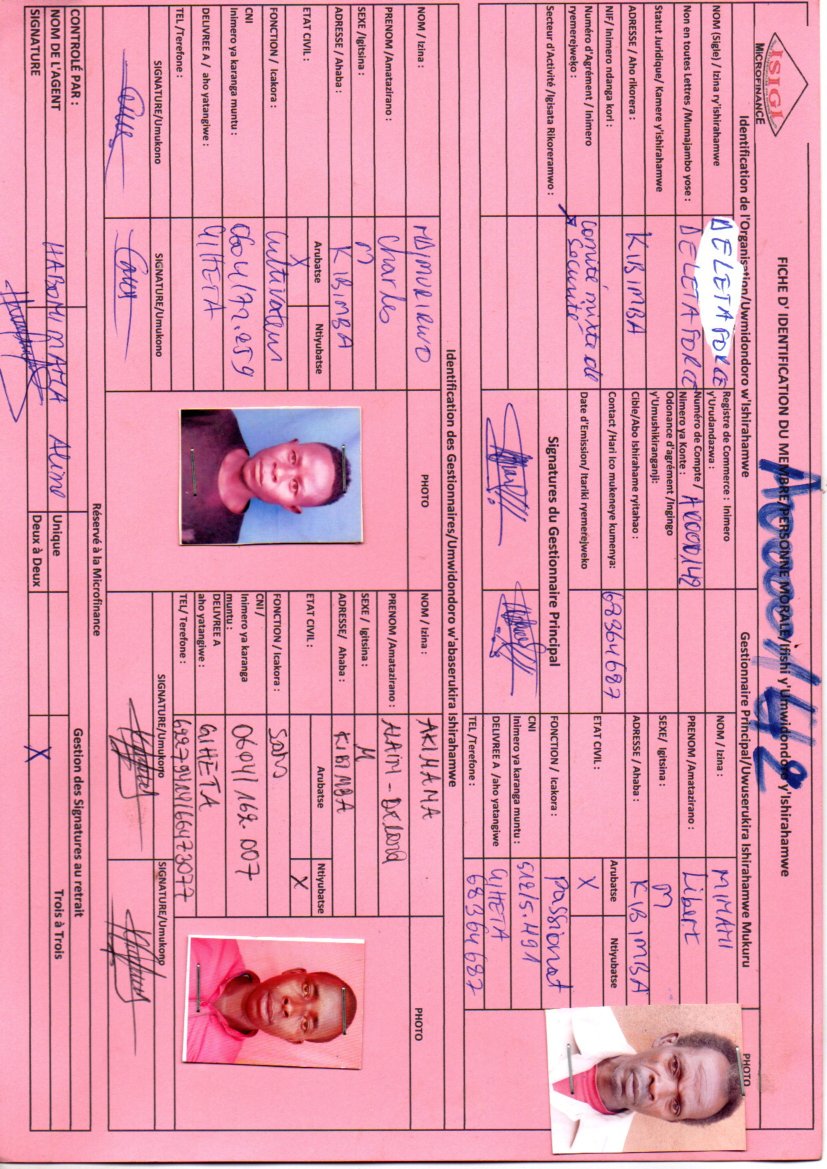 ISIGI
MICROFINANCE
FICHE D' IDENTIFICATION DU MEMBRE/PERSONNE MORALE/Ifishi y'Umwidondoro y'Ishirahamwe
A0000/142
Identification de l'Organisation/Uwmidondoro w'Ishirahamwe
NOM (Sigle) / Izina ry'ishirahamwe
DELETAFORCE
Non en toutes Lettres /Mumajambo yose :
DELETAFORCE
Statut Juridique/ Kamere y'ishirahamwe
ADRESSE / Aho rikorera :
KIBIMBA
NIF/ Inimero ndanga kori :
Numéro d'Agrément / Inimero
ryemerejweko :
Secteur d'Activité /Igisata Rikoreramwo :
comité mixte de
sécurité
Registre de Commerce : Inimero
y'Urudandazwa :
Numéro de Compte /
Nimero ya Konte :
A0000142
Odonance d'agrément /Ingingo
y'Umushikiranganji:
Cible/Abo Ishirahame ryitahao :
Contact /Hari ico mukeneye kumenya:
68364687
Date d'Emission/ Itariki ryemerejweko
Signatures du Gestionnaire Principal
Gestionnaire Principal/Uwuserukira Ishirahamwe Mukuru
NOM / Izina :
PRENOM /Amatazirano :
Libert
SEXE/ Igitsina :
M
ADRESSE / Ahaba :
KIBIMBA
ETAT CIVIL :
Arubatse
Ntiyubatse
X
FONCTION / Icakora :
CNI
Inimero ya karanga muntu :
512/5.491
DELIVREE A /aho yatangiwe
GIHETA
TEL /Terefone :
68364687
PHOTO
Identification des Gestionnaires/Umwidondoro w'abaserukira Ishirahamwe
NOM / Izina :
NDIMURIRWO
PRENOM /Amatazirano :
Charles
SEXE /Igitsina :
M
ADRESSE / Ahaba :
KIBIMBA
ETAT CIVIL :
Arubatse
Ntiyubatse
X
FONCTION / Icakora :
Cultivateur
Inimero ya karanga muntu :
0604/72.259
DELIVREE A / aho yatangiwe :
GIHETA
TEL /Terefone :
SIGNATURE/Umukono
SIGNATURE/Umukono
PHOTO
NOM / Izina :
AKIMANA
PRENOM /Amatazirano :
ALAIN - Delond
SEXE / Igitsina :
M
ADRESSE/ Ahaba :
KIBIMBA
ETAT CIVIL :
Arubatse
Ntiyubatse
X
FONCTION / Icakora :
CNI /
Inimero ya karanga
muntu :
0604/162.007
DELIVREE A
aho yatangiwe :
GIHETA
TEL/ Terefone :
SIGNATURE/Umukono
SIGNATURE/Umukono
PHOTO
Réservé à la Microfinance
CONTROLÉ PAR :
NOM DE L'AGENT
HABONIMANA Aline
SIGNATURE
Gestion des Signatures au retrait
Unique
Trois à Trois
Deux à Deux
X